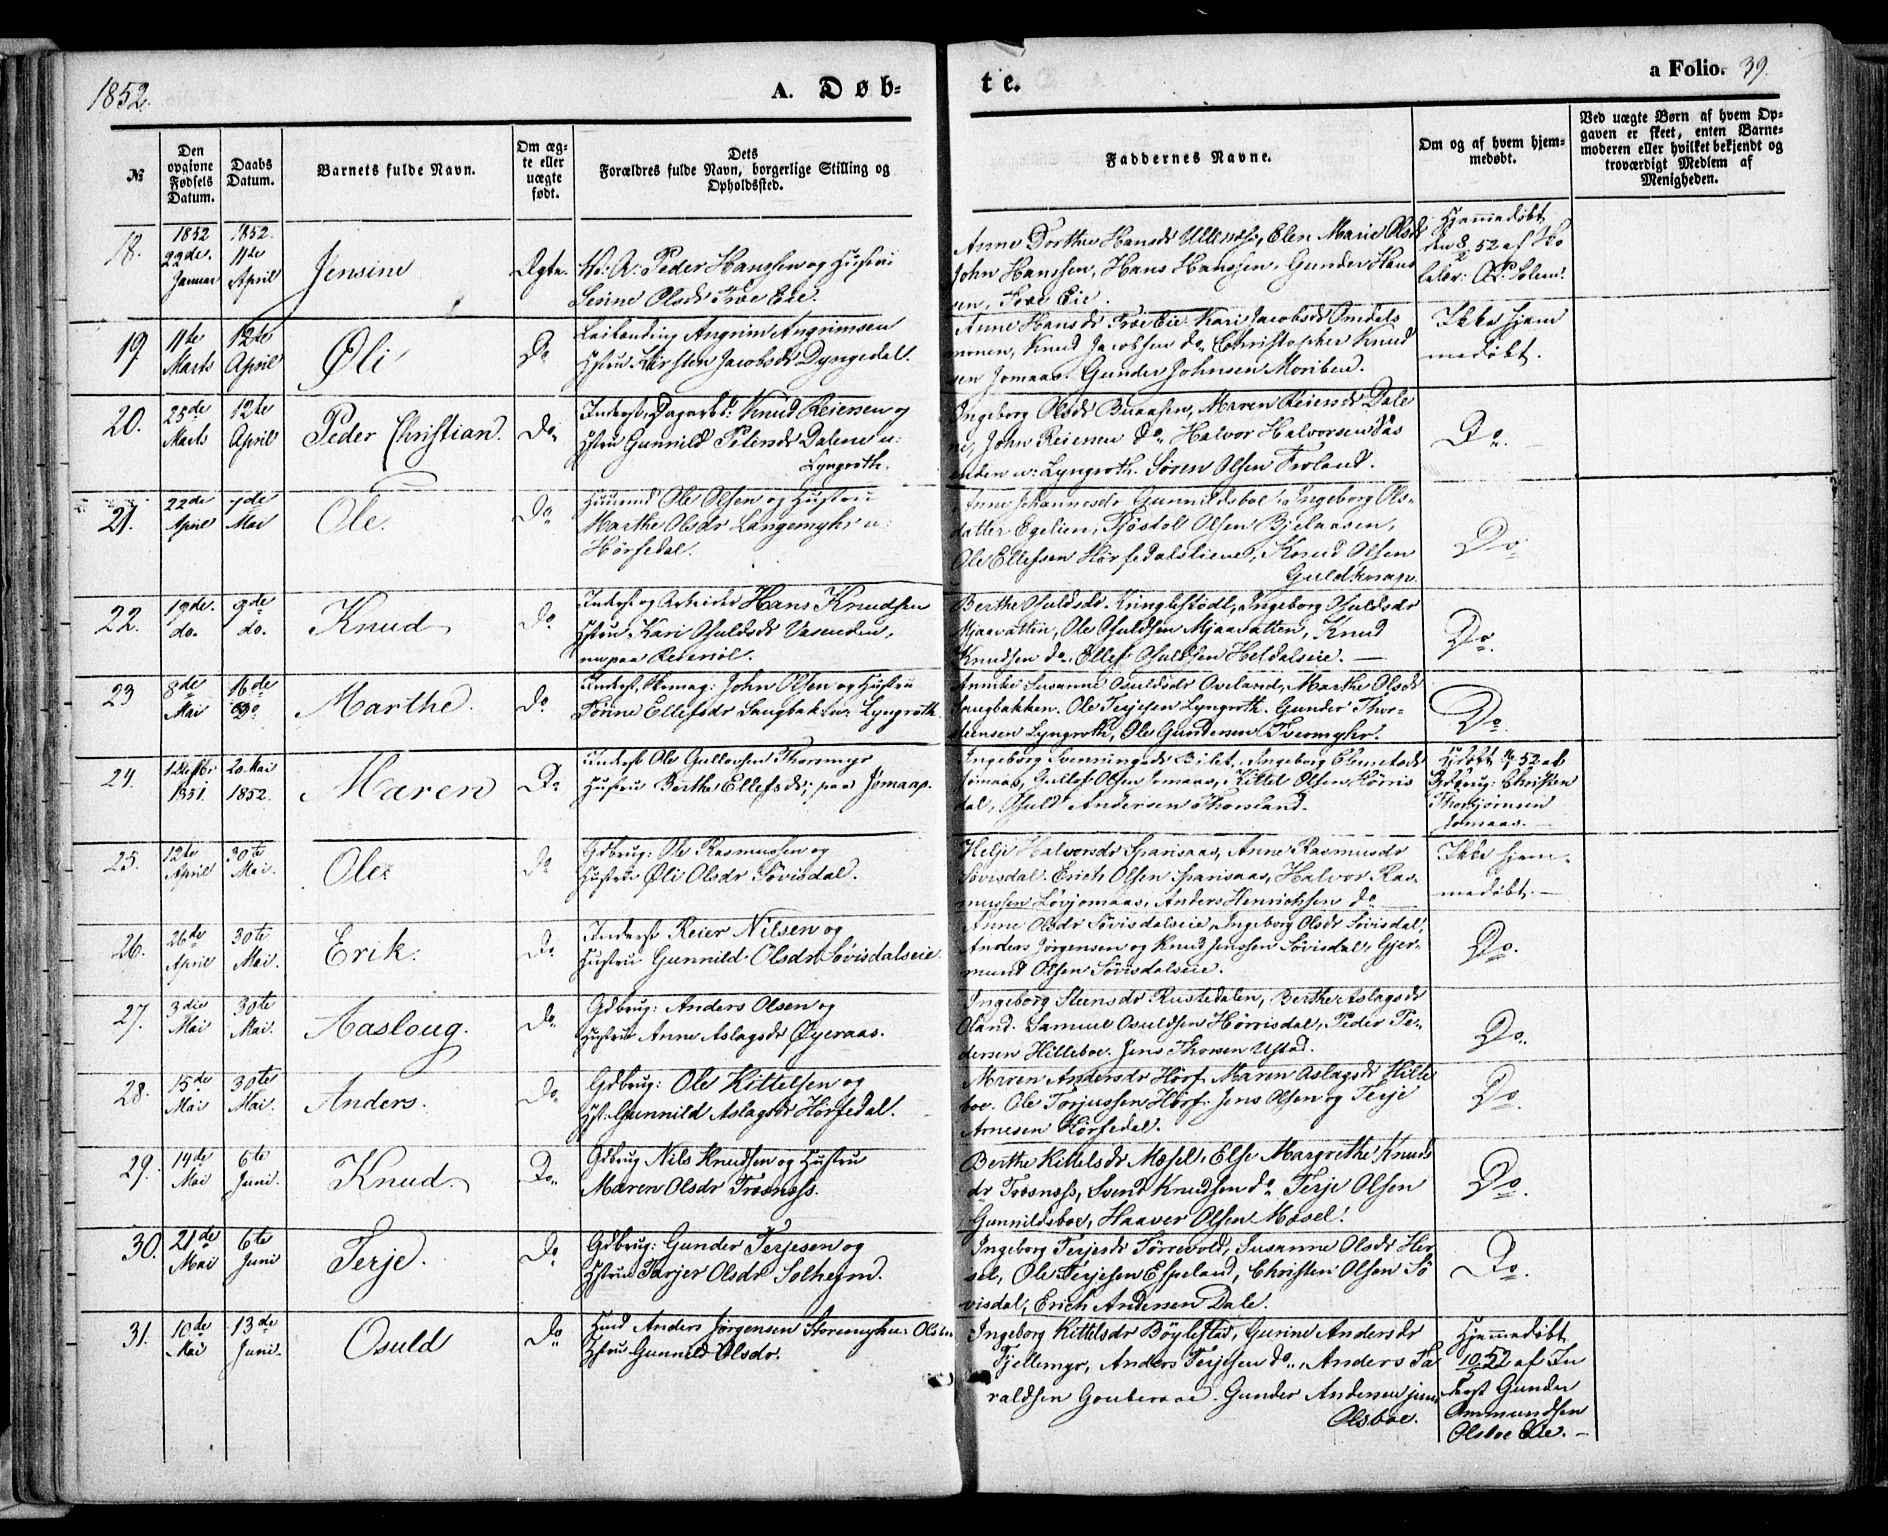 1852.
A. Døb-
te.
a Folio. 39.
№
Den opgivne Fødsels Datum.
Daabs Datum.
Barnets fulde Navn.
Om ægte eller uægte født.
Dets Forældres fulde Navn, borgerlige Stilling og Opholdssted.
Faddernes Navne.
Om og af hvem hjemmedøbt.
Ved uægte Børn af hvem Opgaven er skeet, enten Barnemoderen eller hvilket bekjendt og troværdigt Medlem af Menigheden.
18. 1852 22de Januar 1852. 11te April Jensine Ægte. Peder Hanssen og Hustru
Sevine Olsdr Froe Eie.
Anne Dorthea Hansdr Elen Marie Olsdr
John Hanssen, Hans Hanssen, Gunder Hans
sen, Froe Eie.
Hjemmedøbt
den 8/2 52 af
19 11te Marts 12te April Øli Do Angrim Angrimsen
Hstru Kirsten Jacobsdr Dyngedal.
Anne Hansdr Froe Eie Kari Jacobsdr
Knud Jacobsen do Christopher Knud
sen Jomaas. Gunder Johnsen Moriben.
Ikke hjem
medøbt.
20. 25de Marts 12te April Peder Christian. Do Inderst, Dagarbd: Knud Reiersen og
Hstru Gunnild Petersdr Dalene u:
Lyngroth.
Ingeborg Olsdr Buaasen, Maren Reiersdr Dale
ne, John Reiersen do Halvor Halvorsen Vas
enden u: Lyngroth. Søren Olsen Froland.
Do.
21. 22de April 1de Mai Ole. Do Huusmd Ole Olsen og Hustru
Marthe Olsdr Langemyhr u:
Hørsedal.
Anne Johannesdr Gunnildsboe, Ingeborg Ols-
datter Egelien, Tjøstol Olsen Bjelaasen,
Ole Ellefsen Hørsedalsliene, Knud Olsen
Guldknap.
Do
22. 19de do. 9de do. Knud Do Inderst og Arbeider Hans Knudsen
Hstru Kari Osuldsdr Vasenden,
nu paa Reiersøl.
Berthe Osuldsdr Ingeborg Osuldsdr
Mjaavatten, Ole Osuldsen Mjaavatten, Knud
Knudsen do. Ellef Osuldsen Heldalseie.
Do.
23 8de Mai 16de Do Marthe. Do Inderst, John Olsen og Hustru
Tonne Ellefsdr Saugbak u: Lyngroth.
Susanne Osuldsdr Oveland, Marthe Olsdr
Saugbakken. Ole Terjesen Lyngroth. Gunder Thor-
steensen Lyngroth, Ole Gundersen Tvermyhr.
Do
24. 1851. 20 Mai 1852. Maren Do Inderst Ole Gullovsen Thoremyr
Hustru Berthe Ellefsdr; paa Jomaas.
Ingeborg
Jomaas, Gullef Olsen Jomaas, Kittel Olsen Hørris
dal, Osuld Andersen Thorsland.
Hjdøbt 52 af
Gdbrug: Christen
Thorbjørnsen
Jomaas.
25. 12te April 30te Mai. Ole Do Gdbrug: Ole Rasmussen og
Hustru Øli Olsdr Søvisdal.
Helje Halvorsdr Sparsaas, Anne Rasmusdr
Søvisdal. Erich Olsen Sparsaas, Halvor Ras
mussen Løvjomaas, Anders Henrichsen do
Ikke hjem-
medøbt.
26. 26de April 30te Mai. Erik. Do Inderst Reier Nilsen og
Hustru Gunnild Olsdr Søvisdalseie.
Anne Olsdr Søvisdalseie, Ingeborg Olsdr Søvisdal,
Anders Jørgensen og Knud Jenssen Søvisdal, Gjer-
mund Olsen Søvisdalseie.
Do.
27. 3die Mai 30te Mai. Aasloug. Do. Gdbrug: Anders Olsen og
Hustru Anne Aslagsdr Øyeraas.
Ingeborg Steensdr Rustedalen, Berthe Aslagsdr
Oland. Samuel Osuldsen Hørrisdal, Peder Pe-
dersen Hilleboe. Jens Thorsen Ustad.
Do.
28. 15de Mai 30te Mai. Anders. Do. Gdbrug: Ole Kittelsen og
Hst: Gunnild Aslagsdr Hørsedal.
Maren Andersdr Hørs. Maren Aslagsdr Hille
boe. Ole Torjussen Hørs. Jens Olsen og Terje
Arnesen Hørsedal.
Do.
29. 14de Mai 6te Juni. Knud. Do. Gdbrug Nils Knudsen og Hustru
Maren Olsdr Trosnæss.
Berthe Kittelsdr Mæsel, Else Margrethe Knuds
dr Trosnæss, Svend Knudsen do. Terje Olsen
Gunnildsboe, Haaver Olsen Mæsel.
Do.
30. 21de Mai 6te Juni Terje. Do Gdbrug: Gunder Terjesen og
Hstru Tarjer Olsdr Solhegn.
Ingeborg Terjesdr Tørrevold, Susanne Olsdr Her
sel, Ole Terjesen Espeland, Christen Olsen Sø
visdal, Erich Andersen Dale.
Do.
31. 10de Mai 13de Juni. Osuld Do Husmd Anders Jørgensen Storemyhr u: Olsboe
Hstru Gunnild Olsdr.
Ingeborg Kittelsdr Bøylestad, Gurine Andersdr
Fjellemyr, Anders Terjesen do. Anders Ta
raldsen Gouberaae. Gunder Andersen jun.
Olsboe.
Hjemmedøbt
10/5 52 af In
derst Gunder
Ammundsen
Olsboe Eie.